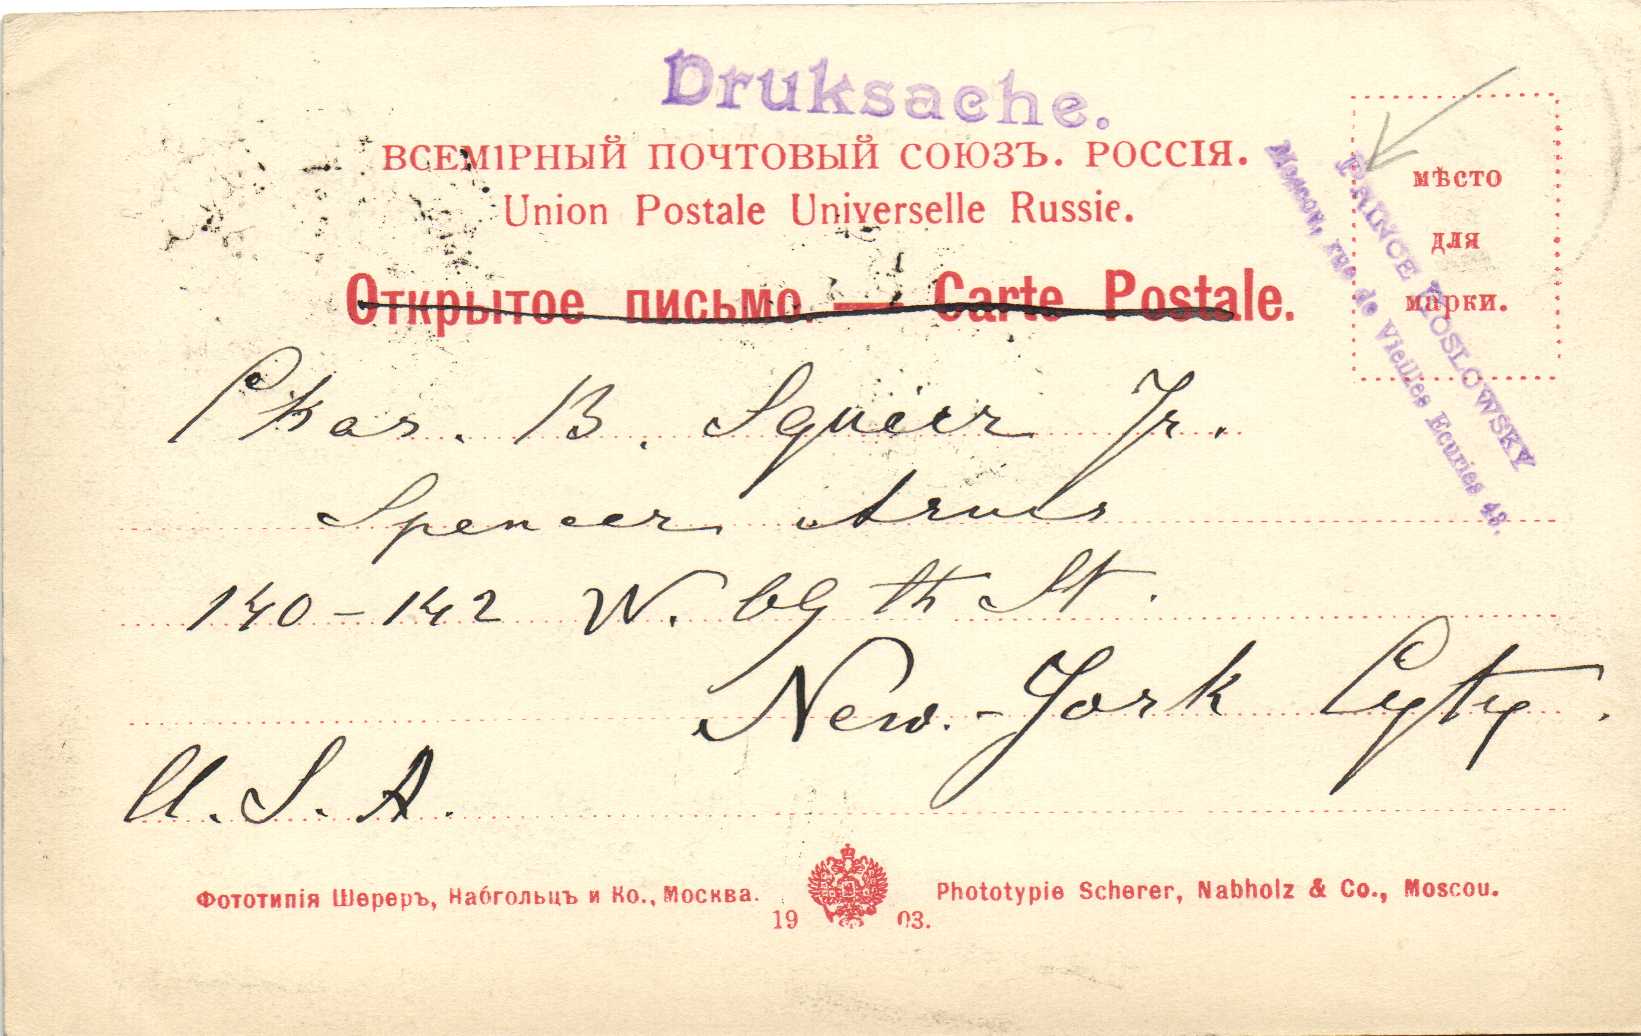 Druksache.
ВСЕМІРНЫЙ ПОЧТОВЫЙ СОЮЗЪ. РОССІЯ.
Union Postale Universelle Russie.
Открытое письмо. — Carte Postale.
мѣсто
для
марки.
PRINCE KOSLOWSKY
Moscou, rue de Vieilles Ecuries 43.
Chas. B. Squier Jr.
Spencer Arms
140-142 W. 69th St.
New-York Cyty.
U. S. A.
Фототипія Шереръ, Набгольцъ и Ко., Москва.
1903.
Phototypie Scherer, Nabholz & Co., Moscou.